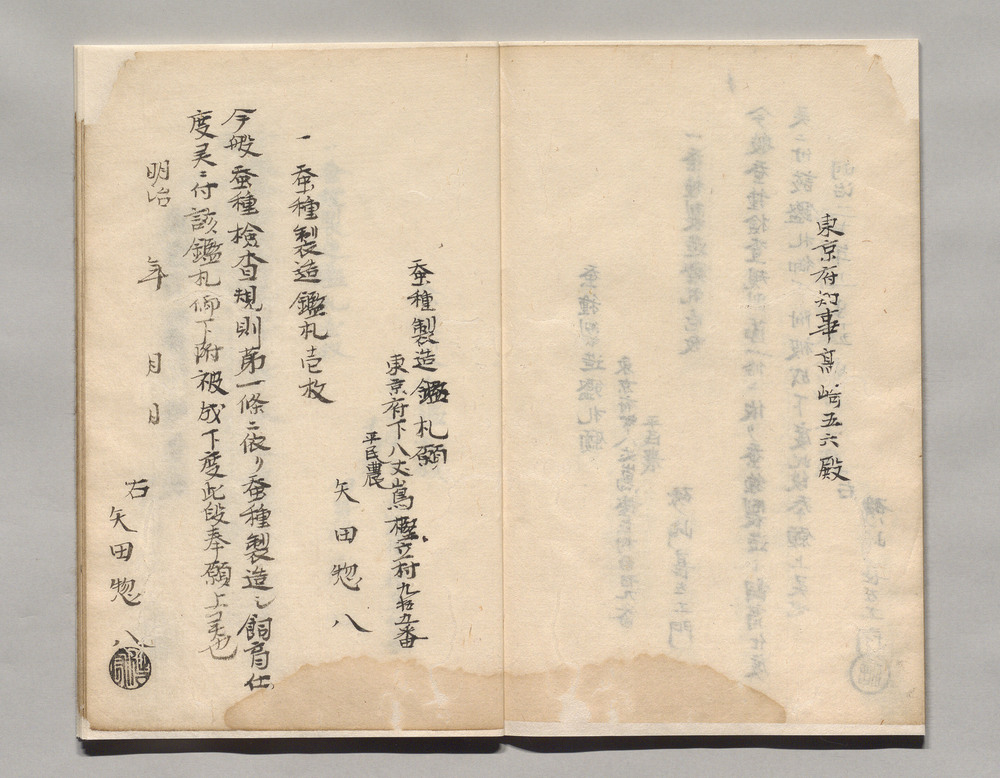 東京府知事高崎五六殿
蚕種製造鑑札願
東京府下八丈嶌樫立村九拾九番
平民農
矢田惣八
一 蚕種製造鑑札壱枚
今般蚕種検査規則第一條ニ依リ蚕種製造シ飼育仕
度候ニ付該鑑札御下附被成下度此段奉願上候也
明治 年 月 日
右
矢田惣八